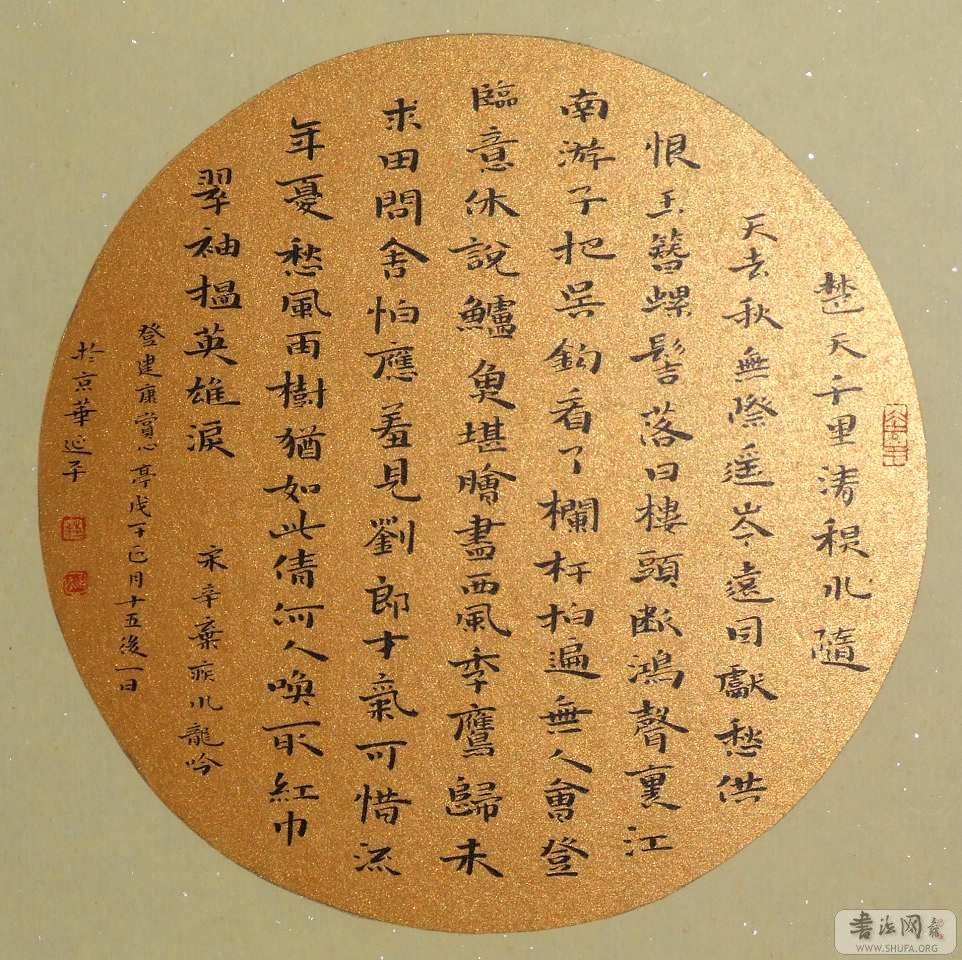 楚天千里清秋水隨
天去秋無際遥岑遠目獻愁供
恨玉簪螺髻落日樓頭斷鴻聲裏江
南游子把吳鈎看了欄杆拍遍無人會登
臨意休說鱸魚堪膾盡西風季鷹歸未
求田問舍怕應羞見劉郎才氣可惜流
年憂愁風雨樹猶如此倩何人喚取紅巾
翠袖搵英雄淚
宋辛棄疾水龍吟
登建康賞心亭戊子月十五後一日
於京華延子
書法网
WWW.SHUFA.ORG